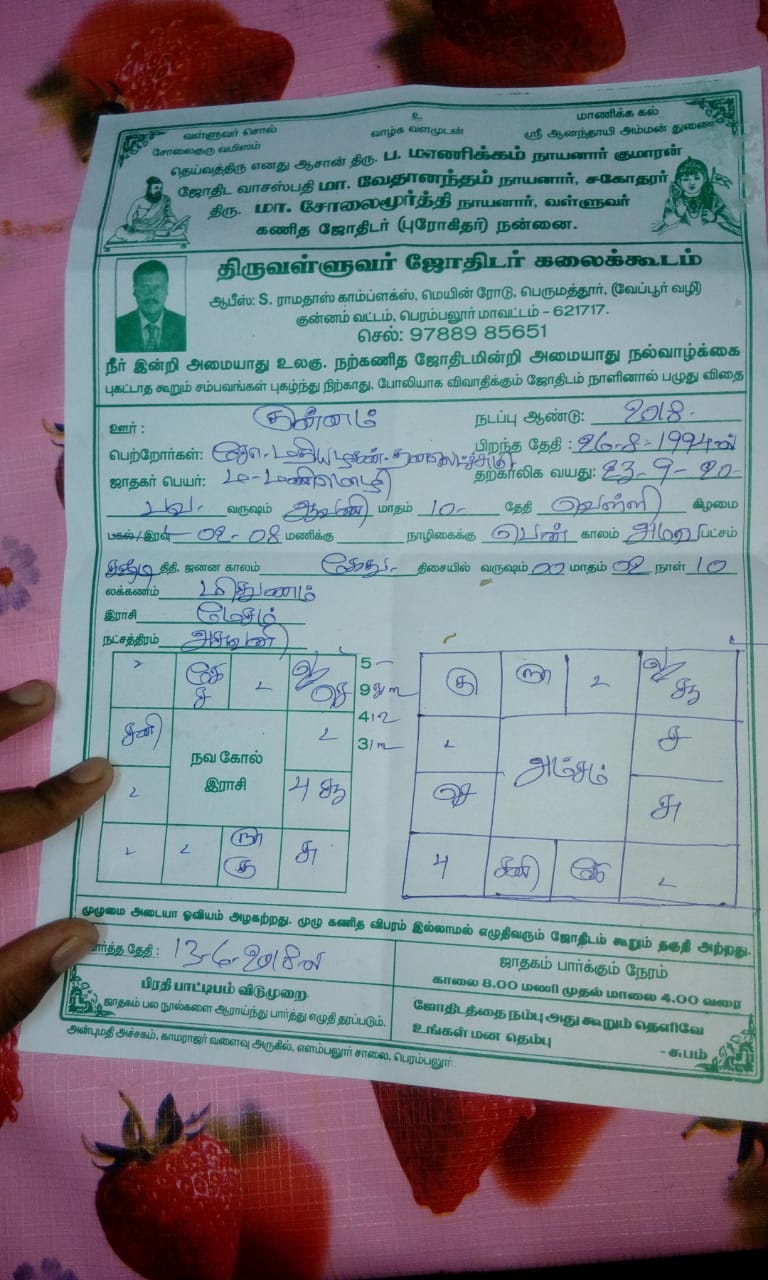 உ
வள்ளுவர் சொல் வாழ்க வளமுடன் மாணிக்க கல்
சோலைகுரு வமிஸம் ஸ்ரீ ஆனந்தாயி அம்மன் துணை
தெய்வத்திரு எனது ஆசான் திரு. ப. மாணிக்கம் நாயனார் குமாரன்
ஜோதிட வாசஸ்பதி மா. வேதானந்தம் நாயனார், சகோதரர்
திரு. மா. சோலைமூர்த்தி நாயனார், வள்ளுவர்
கணித ஜோதிடர் (புரோகிதர்) நன்னை.
திருவள்ளுவர் ஜோதிடர் கலைக்கூடம்
ஆபீஸ்: S. ராமதாஸ் காம்ப்ளக்ஸ், மெயின் ரோடு, பெருமத்தூர், (வேப்பூர் வழி)
குன்னம் வட்டம், பெரம்பலூர் மாவட்டம் - 621717.
செல்: 97889 85651
நீர் இன்றி அமையாது உலகு. நற்கணித ஜோதிடமின்றி அமையாது நல்வாழ்க்கை
புகட்டாத கூறும் சம்பவங்கள் புகழ்ந்து நிற்காது. போலியாக விவாதிக்கும் ஜோதிடம் நாளினால் பழுது விதை
ஊர் : குன்னம் நடப்பு ஆண்டு: 2018
பெற்றோர்கள்: பிறந்த தேதி : 26-8-1994ல்
ஜாதகர் பெயர்: ம-மணிமொழி தற்காலிக வயது: 23-9-20
பவ வருஷம் ஆவணி மாதம் 10 தேதி வெள்ளி கிழமை
பகல்/இரவு 02-08 மணிக்கு நாழிகைக்கு பெண் காலம் அமர பட்சம்
சஷ்டி திதி, ஜனன காலம் கேது திசையில் வருஷம் 00 மாதம் 02 நாள் 10
லக்கணம் மிதுனம்
இராசி மேசம்
நட்சத்திரம் அசுவினி
கே ச
சனி
நவ கோல்
இராசி
4 சூ
ரா கு சு
5
9
4
3
கு ரா
அம்சம்
ச
சு
4 சனி கே
முழுமை அடையா ஓவியம் அழகற்றது. முழு கணித விபரம் இல்லாமல் எழுதிவரும் ஜோதிடம் கூறும் தகுதி அற்றது.
பார்த்த தேதி : 13-6-2018ல்
ஜாதகம் பார்க்கும் நேரம்
காலை 8.00 மணி முதல் மாலை 4.00 வரை
பிரதி பாட்டிபம் விடுமுறை
ஜாதகம் பல நூல்களை ஆராய்ந்து பார்த்து எழுதி தரப்படும்.
ஜோதிடத்தை நம்பு அது கூறும் தெளிவே
உங்கள் மன தெம்பு
- சுபம்
அன்புமதி அச்சகம், காமராஜர் வளைவு அருகில், எளம்பலூர் சாலை, பெரம்பலூர்.